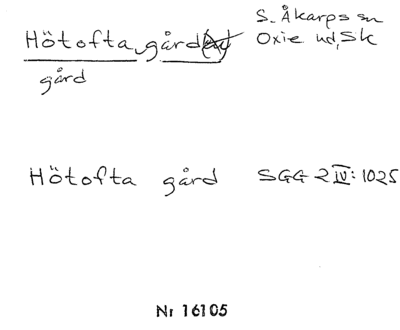 Hötofta gård
S. Åkarps sn
Oxie hd, Sk
gård
Hötofta gård SGG 2 IV: 1025
Nr 16105